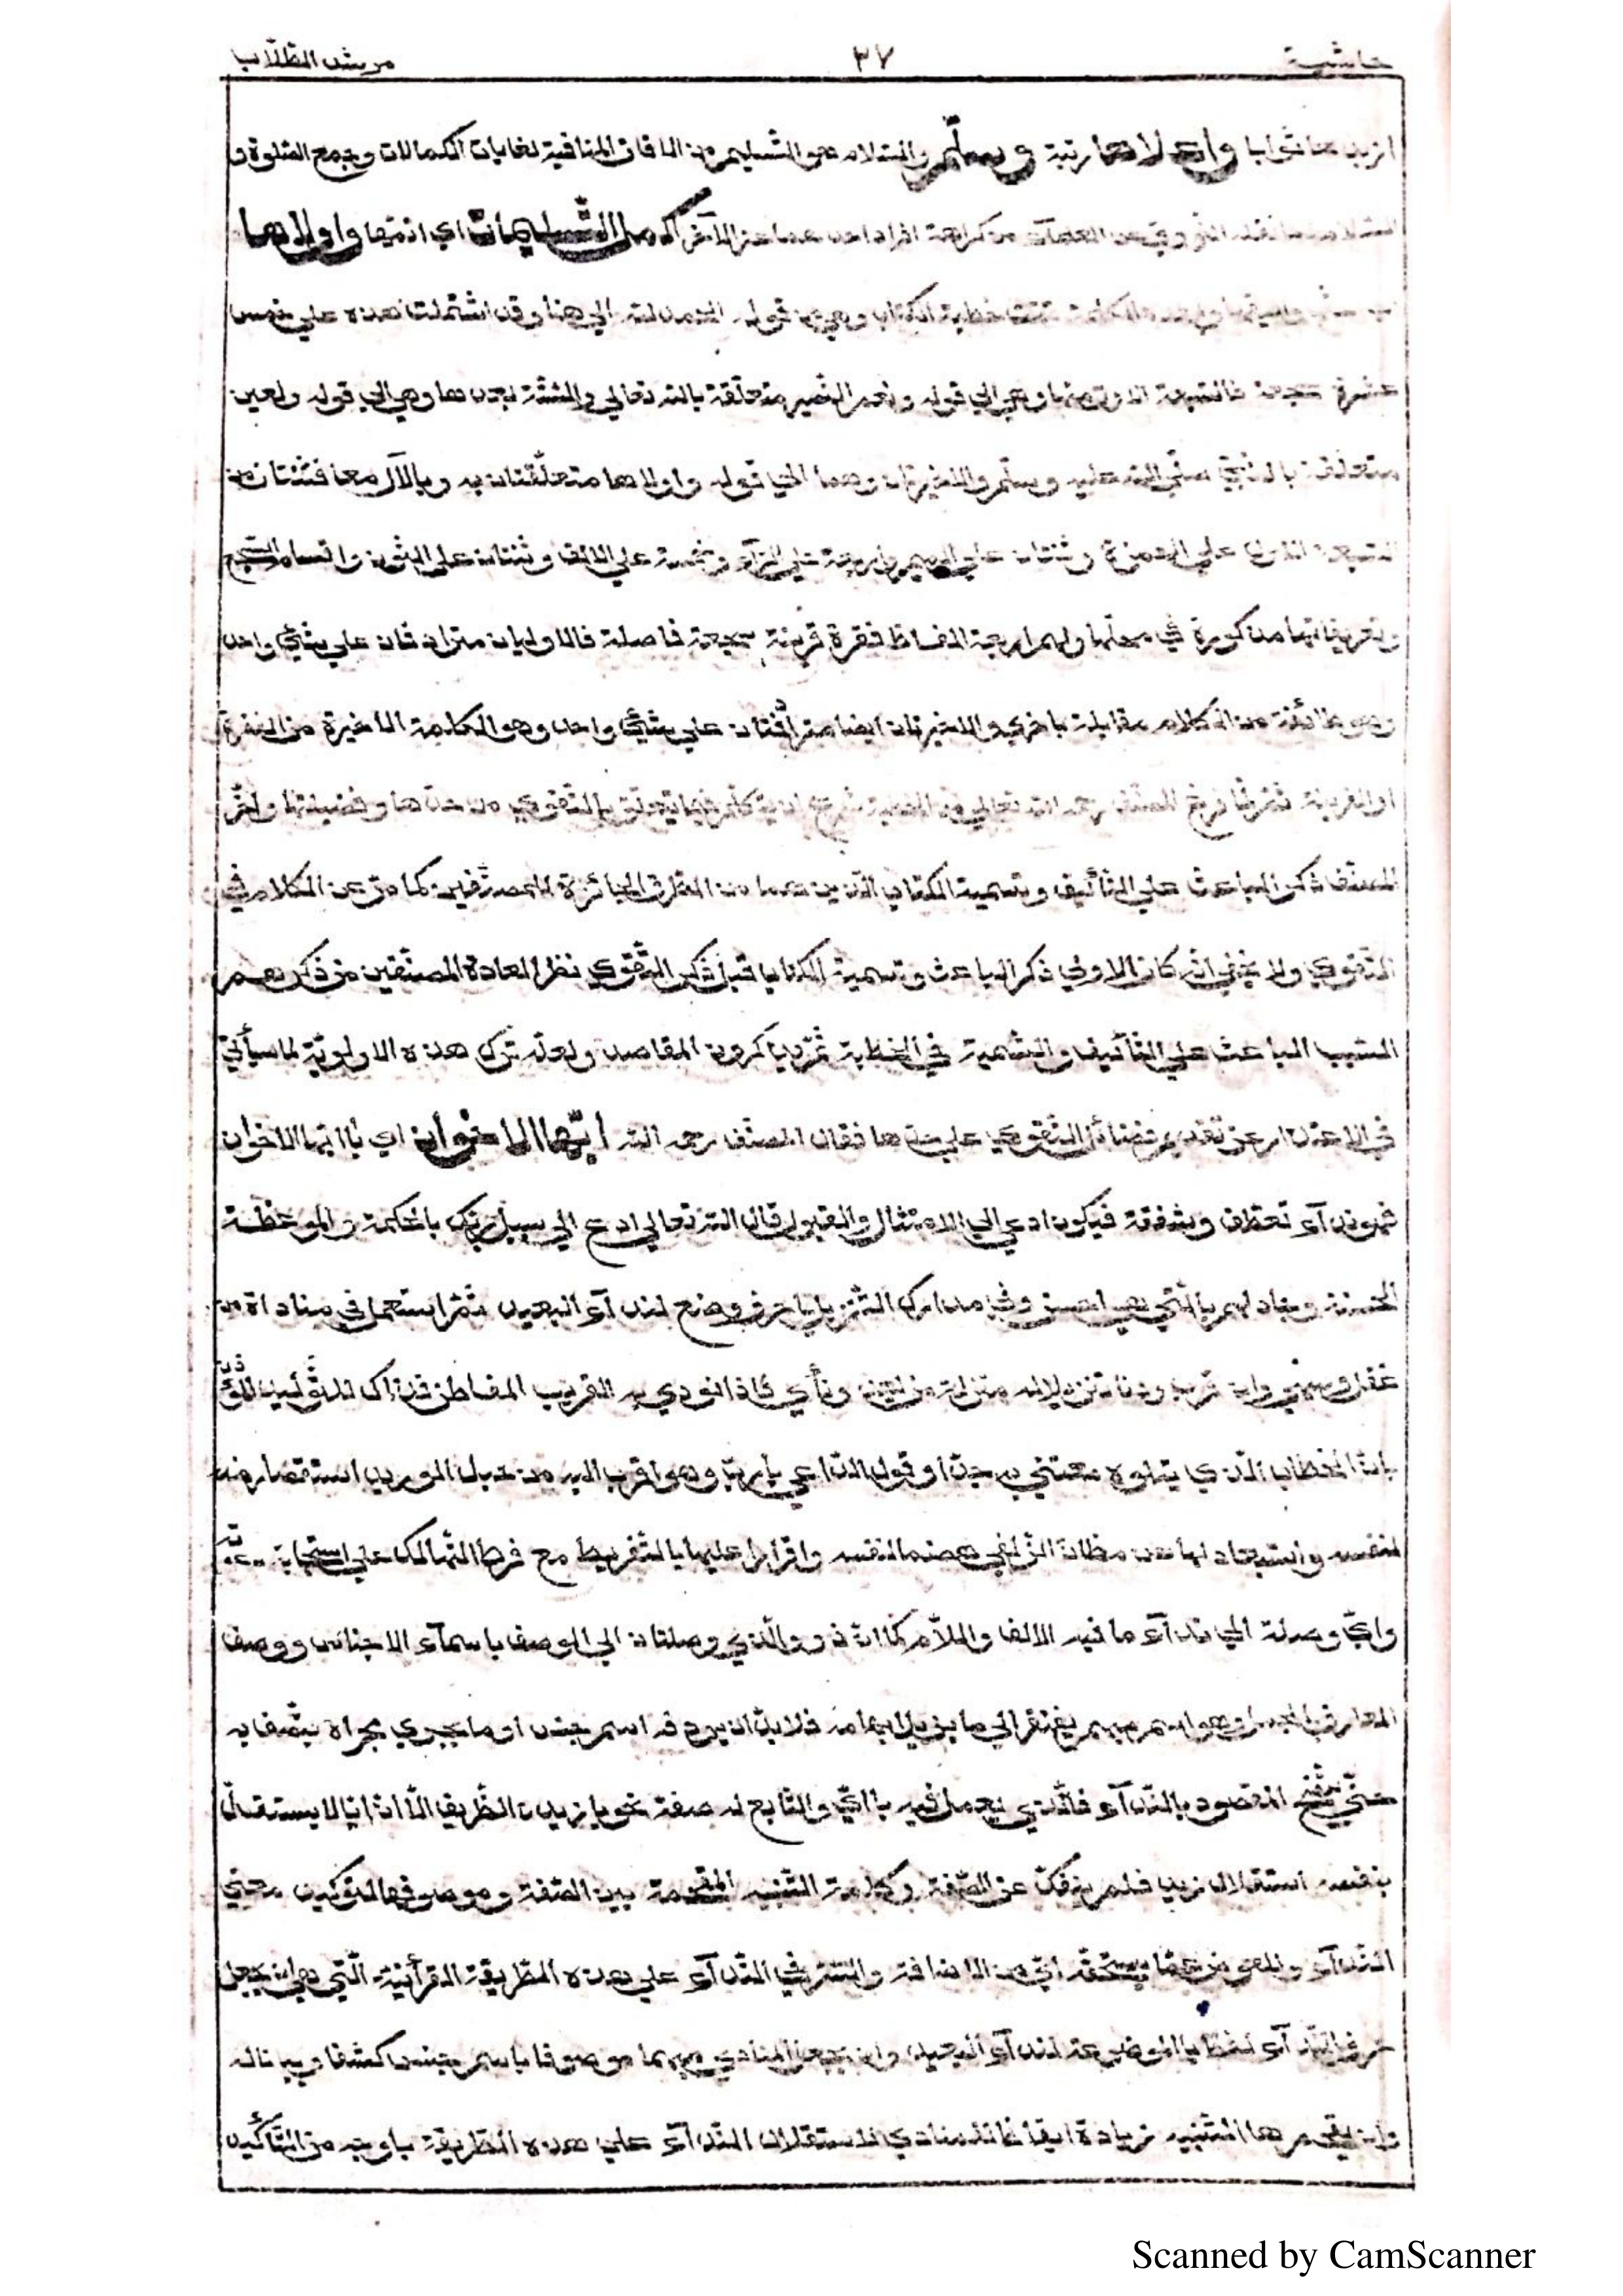 حاشية ٣٧ مرشد الطلاب
ازيدها ثوابا واعلاها رتبة وسلّم والسّلام هو التّسليم من الافات المنافية لغايات الكمالات وجمع الصّلوة و
السّلام لما نقله النّووي عن العلمآء من كراهة افراد احدهما عن الآخر اكمل التّسليمات اي اتمّها واولاها
خطبة الكتاب وهي من قوله الحمد لله الي هنا وقد اشتملت هذه علي خمس
عشرة سجعة فالتسعة الاولي منها وهي الي قوله ونعم النّصير متعلّقة بالله تعالي والستّة بعدها وهي الي قوله
متعلّقة بالنّبيّ صلّي الله عليه وسلّم والاخيرتان وهما الي قوله واولاها متعلّقتان به وبالآل معا فثنتان من
التسعة الاولي علي الهمزة وثنتان علي الميم واربعة علي الرّآء وخمسة علي الالف وثنتان علي النّون واقسام السّجع
وتعريفاتها مذكورة في محلّها ولهم اربعة الفاظ فقرة قرينة سجعة فاصلة فالاوليان مترادفان علي شيء واحد
وهو طائفة من الكلام مقابلة باخري والاخيرتان ايضا مترادفتان علي شيء واحد وهو الكلمة الاخيرة من الفقرة
او القرينة ثمّ لمّا فرغ المصنّف رحمه الله تعالي من الخطبة شرع ان يتكلّم فيما يتعلّق بالتّقوي من حدّها وفضيلتها واخّر
المصنّف ذكر الباعث علي التّأليف وتسمية الكتاب الّذين هما من الطّرق الجائزة للمصنّفين كما مرّ عن الكلام في
التّقوي ولا يخفي انّه كان الاولي ذكر الباعث وتسمية الكتاب قبل ذكر التّقوي نظرا لعادة المصنّفين من ذكرهم
السّبب الباعث علي التّأليف والتّسمية في الخطبة ثمّ يذكرون المقاصد ولعلّه ترك هذه الاولويّة لما سيأتي
في الاعتذار عن تقديم فضائل التّقوي علي حدّها فقال المصنّف رحمه الله ايّها الاخوان اي يا ايّها الاخوان
فهو ندآء تعطّف وشفقة فيكون ادعي الي الامتثال والقبول قال الله تعالي ادع الي سبيل ربّك بالحكمة والموعظة
الحسنة وجادلهم بالّتي هي احسن وفي مدارك التّنزيل يا حرف وضع لندآء البعيد ثمّ استعمل في مناداة من
غفل وسهي وان قرب ودنا تنزيلا له منزلة من بعد ونأي فاذا نودي به القريب المفاطن فذاك للتّوكيد المؤذن
بانّ الخطاب الّذي يتلوه معتني به جدّا وقول الدّاعي يا ربّ وهو اقرب اليه من حبل الوريد استقصار منه
لنفسه واستبعاد لها عن مظانّ الزّلفي هضما لنفسه واقرارا عليها بالتّفريط مع فرط التّهالك علي استجابة دعوته
وايّ وصلة الي ندآء ما فيه الالف واللّام كما انّ ذو والّذي وصلتان الي الوصف باسمآء الاجناس ووصف
المعارف بالجمل وهو اسم مبهم يفتقر الي ما يزيل ابهامه فلا بدّ ان يردفه اسم جنس او ما يجري مجراه يتّصف به
حتّي يتّضح المقصود بالنّدآء فالّذي يعمل فيه يا ايّ والتّابع له صفة نحو يا زيد الظّريف الّا انّ ايّا لا يستقلّ
بنفسه استقلال زيد فلم ينفكّ عن الصّفة وكلمة التّنبيه المقحمة بين الصّفة وموصوفها لتوكيد معني
النّدآء وللعوض عمّا يستحقّه ايّ من الاضافة وكثر في النّدآء علي هذه الطّريقة القرآنيّة الّتي هي ان يجعل
حرف النّدآء لفظ يا الموضوعة لندآء البعيد وان يجعل المنادي مبهما موصوفا باسم جنس كشفا وبيانا له
وان يقحم ها التّنبيه زيادة ايقاظ المنادي لاستقلال النّدآء علي هذه الطّريقة باوجه من التّأكيد
Scanned by CamScanner